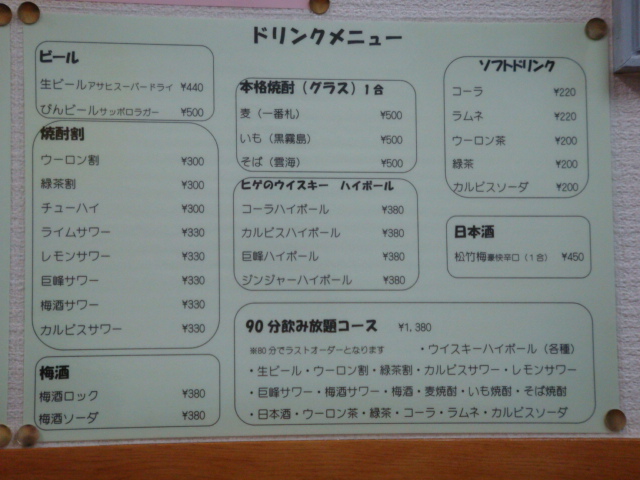 ドリンクメニュー
ビール
生ビールアサヒスーパードライ ¥440
びんビールサッポロラガー ¥500
焼酎割
ウーロン割 ¥300
緑茶割 ¥300
チューハイ ¥300
ライムサワー ¥330
レモンサワー ¥330
巨峰サワー ¥330
梅酒サワー ¥330
カルピスサワー ¥330
梅酒
梅酒ロック ¥380
梅酒ソーダ ¥380
本格焼酎（グラス）1合
麦（一番札） ¥500
いも（黒霧島） ¥500
そば（雲海） ¥500
ヒゲのウイスキー ハイボール
コーラハイボール ¥380
カルピスハイボール ¥380
巨峰ハイボール ¥380
ジンジャーハイボール ¥380
ソフトドリンク
コーラ ¥220
ラムネ ¥220
ウーロン茶 ¥200
緑茶 ¥200
カルピスソーダ ¥200
日本酒
松竹梅豪快辛口（1合） ¥450
90分飲み放題コース ¥1,380
※80分でラストオーダーとなります ・ウイスキーハイボール（各種）
・生ビール・ウーロン割・緑茶割・カルピスサワー・レモンサワー
・巨峰サワー・梅酒サワー・梅酒・麦焼酎・いも焼酎・そば焼酎
・日本酒・ウーロン茶・緑茶・コーラ・ラムネ・カルピスソーダ